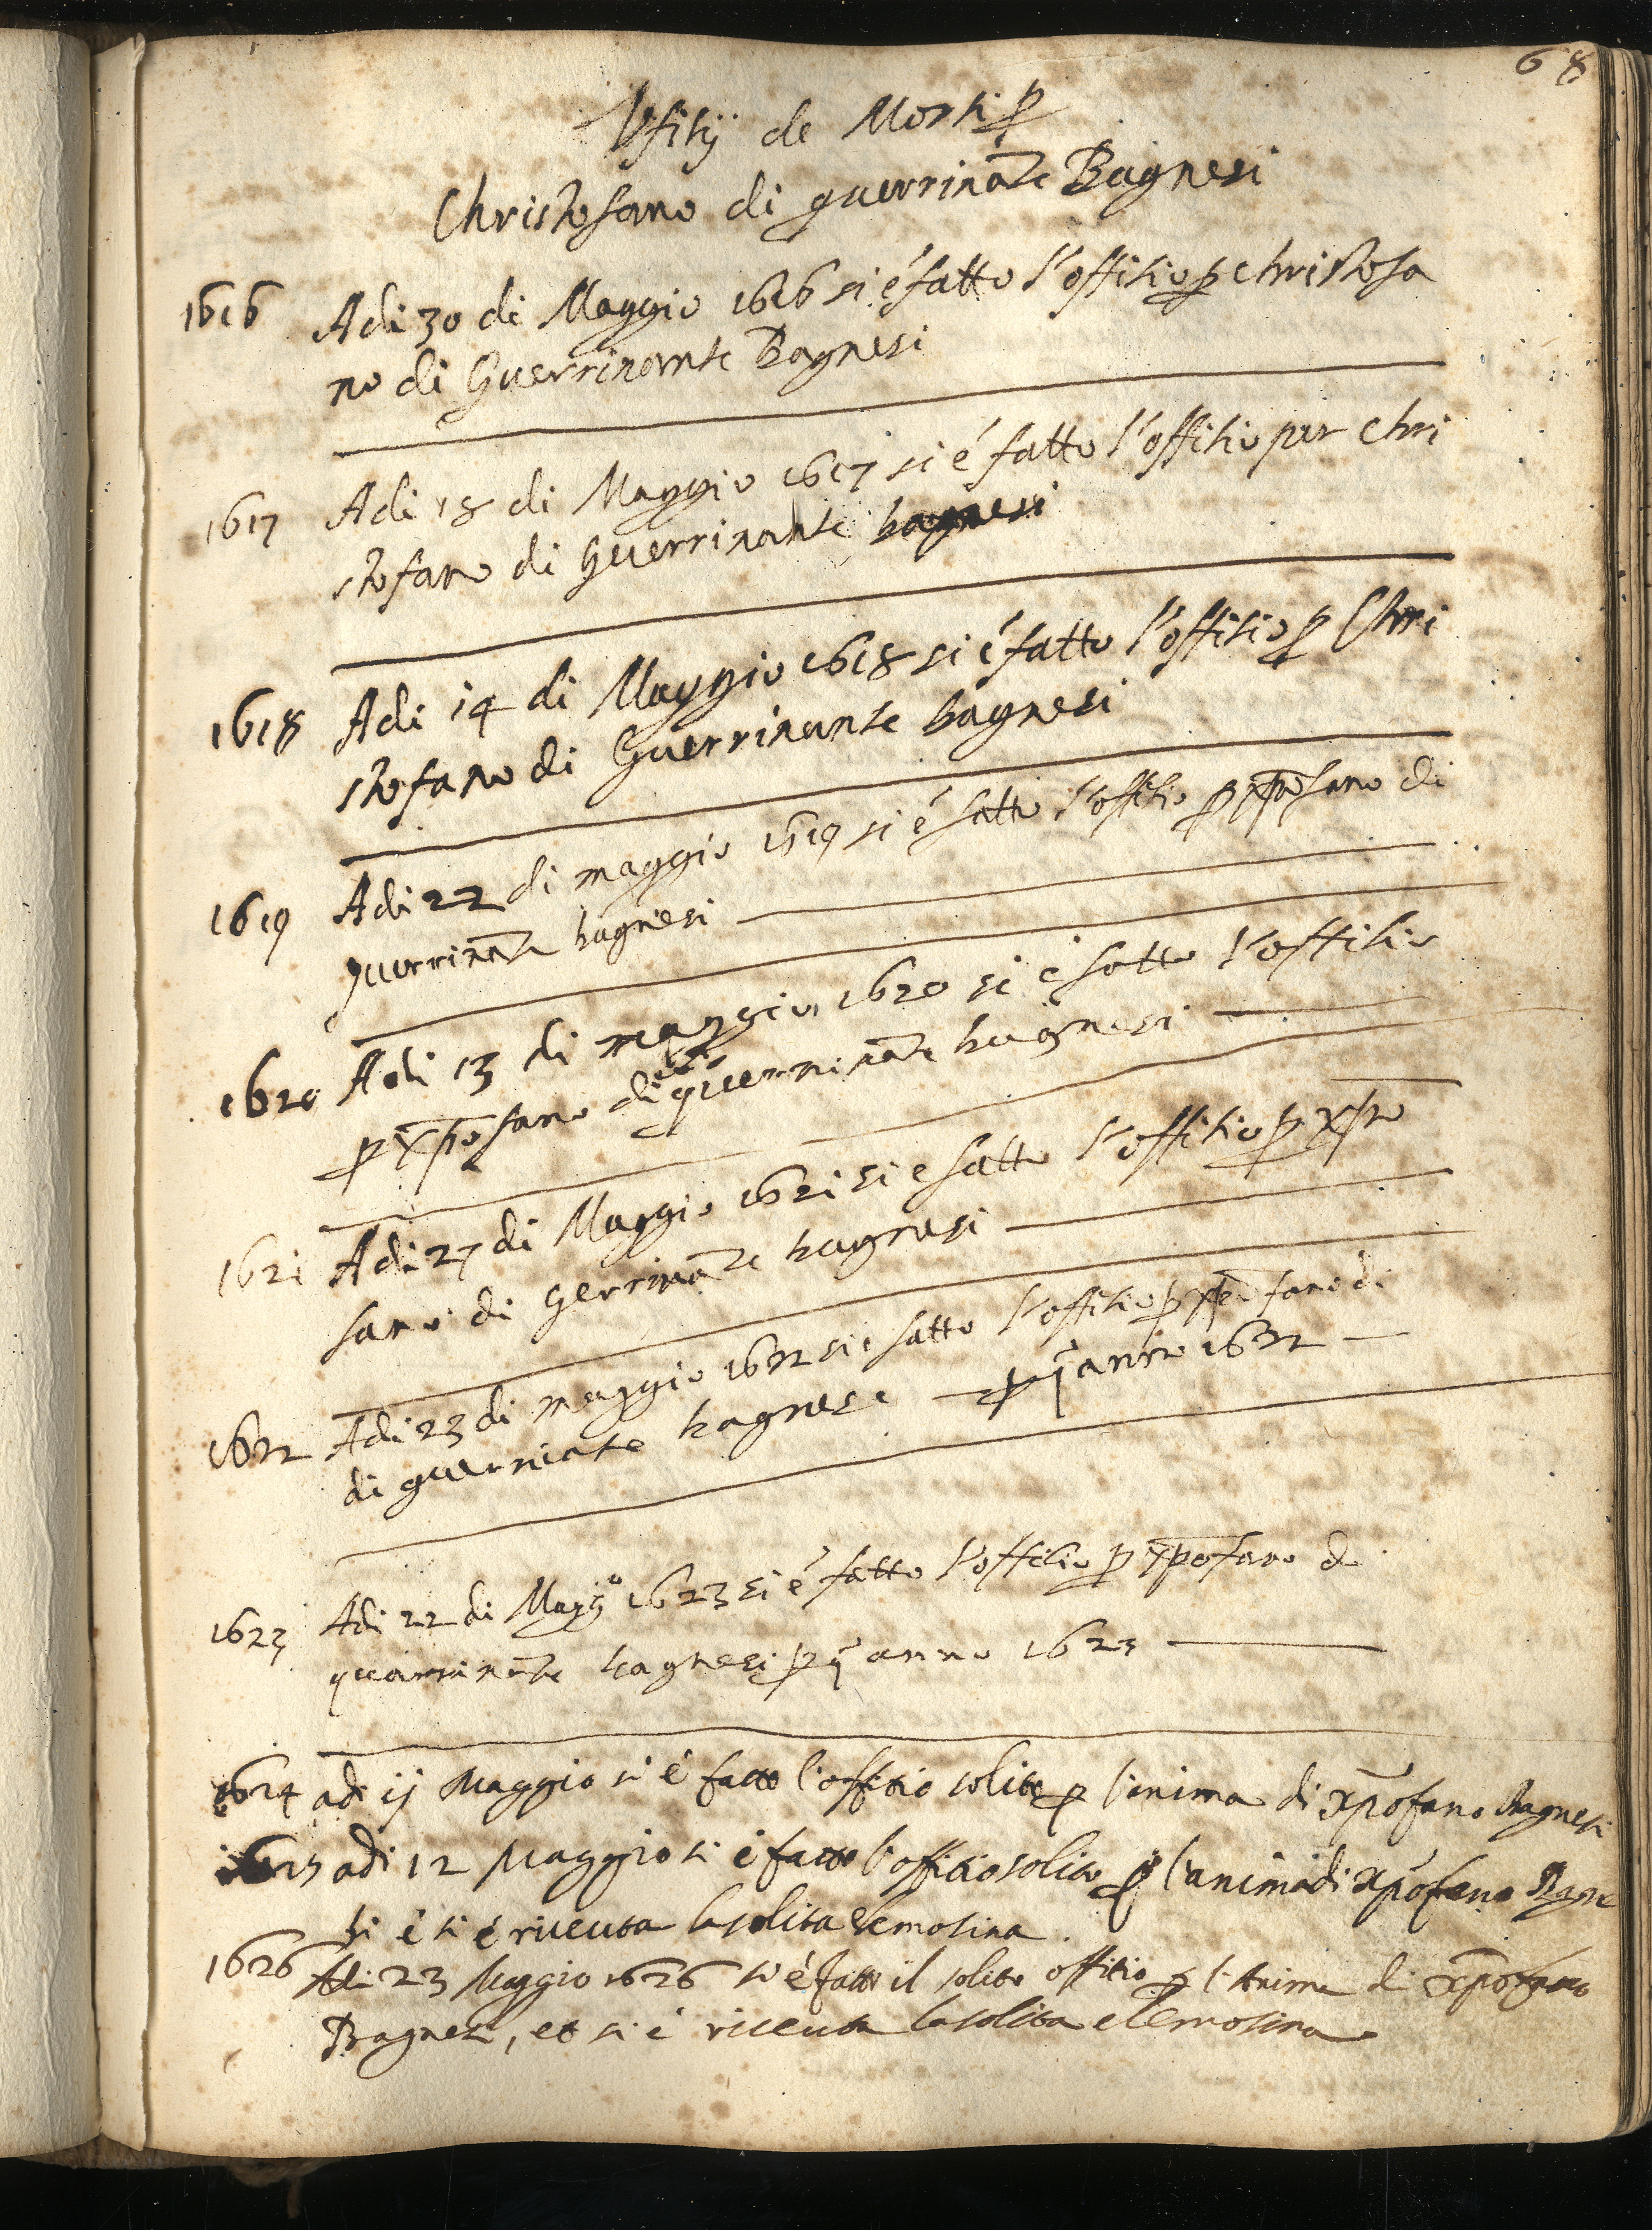 68
Vfitij de Morti p
Christofano di guerrinãte Bagnesi
1616 Adi 30 di Maggio 1616 si é fatto l'offitio p christofa
no di Guerrinante Bagnesi
1617 Adi 18 di Maggio 1617 si é fatto l'offitio per Chri
stofano di Guerrinante bagnesi
1618 Adi 14 di Maggio 1618 si é fatto l'offitio p Chri
stofano di Guerrinante bagnesi
1619 Adi 22 di maggio 1619 si é fatto l'offitio p xp̄ofano di
guerrinãte bagnesi
1620 Adi 13 di maggio 1620 si é fatto l'offitio
p xp̄ofano di guerrinãte bagnesi
1621 Adi 27 di Maggio 1621 si e fatto l'offitio p xp̄o
fano di Gerrinãte bagnesi
1622 Adi 23 di maggio 1622 si e fatto l'offitio p xp̄ofano di
di guerniate bagnese p q̄ anno 1622
1623 Adi 22 di Magg.o 1623 si é fatto l'offitio p xp̄ofano d
guarninãte bagnesi p q̄ anno 1623
1624 adi ij Maggio si é fatto l'offitio solito p l'anima di xp̄ofano Bagnesi
1625 adi 12 Maggio si é fatto l'offitio solito p l'anima di xp̄ofano Bagne
si é si é riceuta la solita elemosina.
1626 Adi 23 Maggio 1626 si é fatto il solito offitio p l'Anima di xp̄ofano
Bagnesi, et si é riceuta la solita elemosina